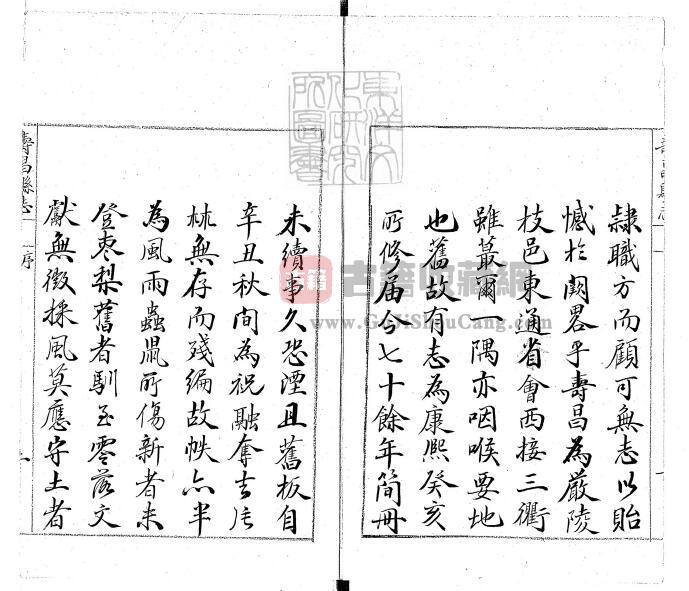 隷職方而顧可無志以貽
憾於闕畧乎壽昌為嚴陵
枝邑東通省會西接三衢
雖蕞爾一隅亦咽喉要地
也舊故有志為康熙癸亥
所修届今七十餘年簡冊
未續事久恐湮且舊板自
辛丑秋間為祝融奪去片
林無存而殘編故帙亦半
為風雨蟲鼠所傷新者未
登枣梨舊者馴至零落文
獻無徴採風莫應守土者
壽昌縣志
序
東洋文化研究所圖書
古籍
古籍收藏網
www.GuJiShouCang.com